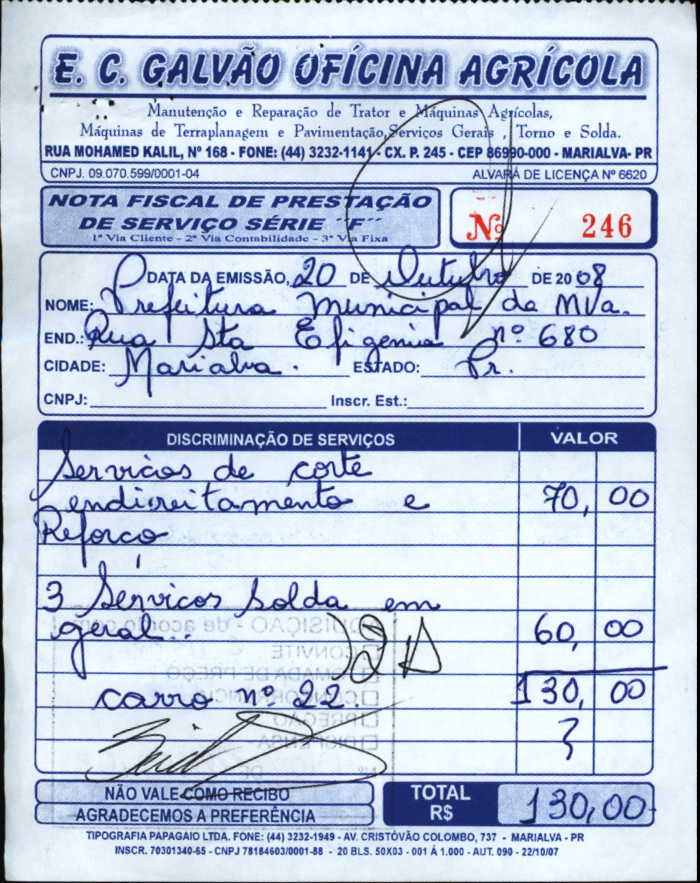 E. C. GALVÃO OFÍCINA AGRÍCOLA
Manutenção e Reparação de Trator e Máquinas Agrícolas,
Máquinas de Terraplanagem e Pavimentação, Serviços Gerais , Torno e Solda.
RUA MOHAMED KALIL, Nº 168 - FONE: (44) 3232-1141 - CX. P. 245 - CEP 86990-000 - MARIALVA- PR
CNPJ. 09.070.599/0001-04 ALVARÁ DE LICENÇA Nº 6620
NOTA FISCAL DE PRESTAÇÃO
DE SERVIÇO SÉRIE ´´F´´
1ª Via Cliente - 2ª Via Contabilidade - 3ª Via Fixa
Nº 246
DATA DA EMISSÃO, 20 DE Outubro DE 2008
NOME: Prefeitura Municipal de MVa.
END.: Rua Sta Efigenia nº 680
CIDADE: Marialva. ESTADO: Pr.
CNPJ: Inscr. Est.:
DISCRIMINAÇÃO DE SERVIÇOS VALOR
Servicos de corte
endireitamento e 70,00
Reforço
3 Servicos solda em
geral.. 60,00
carro nº 22. 130,00
NÃO VALE COMO RECIBO
AGRADECEMOS A PREFERÊNCIA
TOTAL R$ 130,00
TIPOGRAFIA PAPAGAIO LTDA. FONE: (44) 3232-1949 - AV. CRISTÓVÃO COLOMBO, 737 - MARIALVA - PR
INSCR. 70301340-65 - CNPJ 78184603/0001-88 - 20 BLS. 50X03 - 001 Á 1.000 - AUT. 090 - 22/10/07